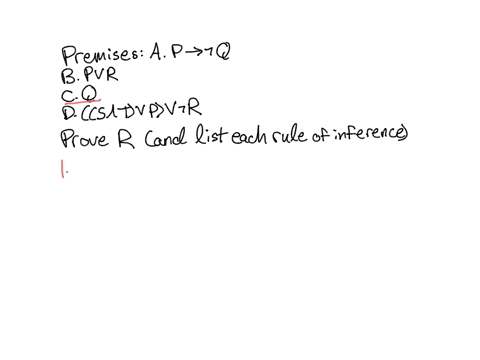 Premises: A. P→¬Q
B. P∨R
C. Q
D. ((S∧¬T)∨P)∨¬R
Prove R (and list each rule of inference)
1.